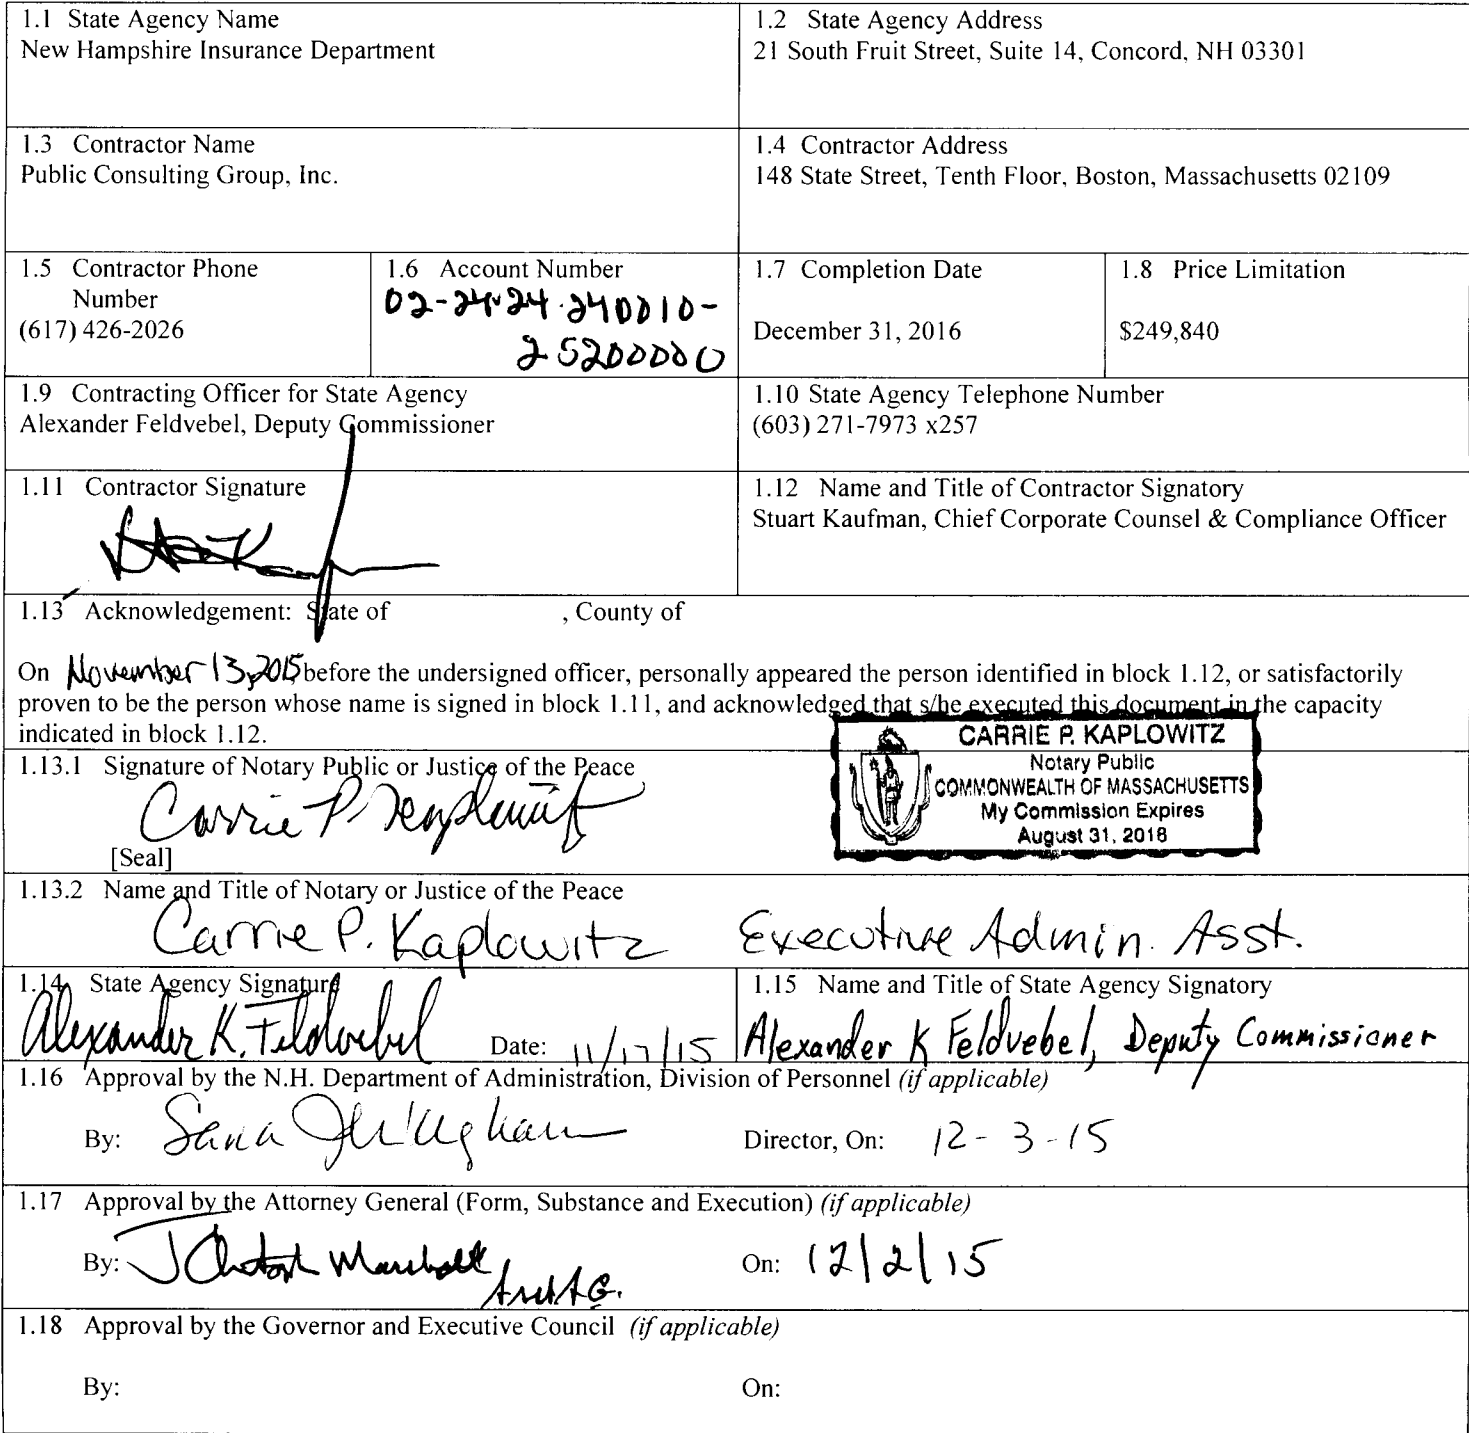 1.1 State Agency Name
New Hampshire Insurance Department
1.2 State Agency Address
21 South Fruit Street, Suite 14, Concord, NH 03301
1.3 Contractor Name
Public Consulting Group, Inc.
1.4 Contractor Address
148 State Street, Tenth Floor, Boston, Massachusetts 02109
1.5 Contractor Phone
Number
(617) 426-2026
1.6 Account Number
02-24-24-240010-
25200000
1.7 Completion Date
December 31, 2016
1.8 Price Limitation
$249,840
1.9 Contracting Officer for State Agency
Alexander Feldvebel, Deputy Commissioner
1.10 State Agency Telephone Number
(603) 271-7973 x257
1.11 Contractor Signature
1.12 Name and Title of Contractor Signatory
Stuart Kaufman, Chief Corporate Counsel & Compliance Officer
1.13 Acknowledgement: State of , County of
On November 13, 2015 before the undersigned officer, personally appeared the person identified in block 1.12, or satisfactorily
proven to be the person whose name is signed in block 1.11, and acknowledged that s/he executed this document in the capacity
indicated in block 1.12.
CARRIE P. KAPLOWITZ
Notary Public
COMMONWEALTH OF MASSACHUSETTS
My Commission Expires
August 31, 2018
1.13.1 Signature of Notary Public or Justice of the Peace
Carrie P Kaplowitz
[Seal]
1.13.2 Name and Title of Notary or Justice of the Peace
Carrie P. Kaplowitz Executive Admin. Asst.
1.14 State Agency Signature
Alexander K. Feldvebel Date: 11/17/15
1.15 Name and Title of State Agency Signatory
Alexander K Feldvebel, Deputy Commissioner
1.16 Approval by the N.H. Department of Administration, Division of Personnel (if applicable)
By: Director, On: 12-3-15
1.17 Approval by the Attorney General (Form, Substance and Execution) (if applicable)
By: Marshall On: 12/2/15
1.18 Approval by the Governor and Executive Council (if applicable)
By: On: